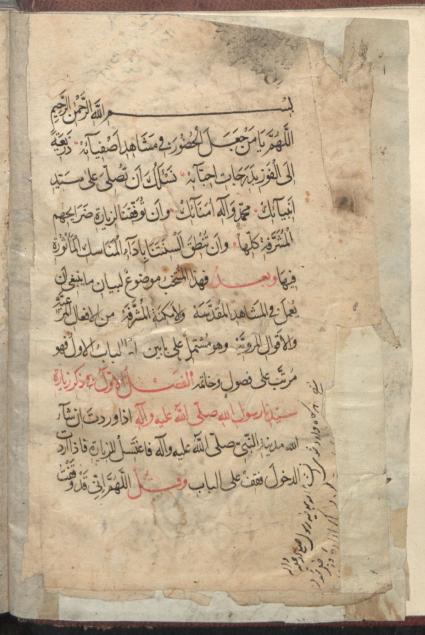 بسم الله الرحمن الرحيم
اللهم يا من جعل الحضور في مشاهد اصفيآئه ذريعة
الى الفوز بدرجات احبآئه نسئلك ان تصلى على سيد
انبيآئك محمد وآله امنآئك وان توفقنا لزيارة ضرايحهم
المشرفة كلها وان تنطق السنتنا باداء المناسك المأثورة
فيها وبعد فهذا المنتخب موضوع لبيان ما ينبغي ان
يعمل في المشاهد المقدسة والامكنة المشرفة من الافعال المرغبة
والاقوال المروية وهو مشتمل على بابين الباب الاول فهو
مرتب على فصول وخاتمة الفصل الاول في ذكر زيارة
سيدنا رسول الله صلى الله عليه وآله اذا وردت ان شآء
الله مدينة النبي صلى الله عليه وآله فاغتسل للزيارة فاذا اردت
الدخول فقف على الباب وقل اللهم اني قد وقفت